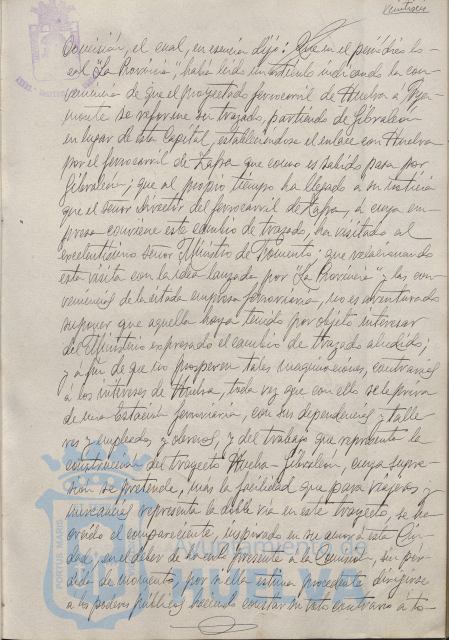 Comisión, el cual, en esencia dijo: Que en el periódico lo-
cal "La Provincia", había leido un artículo indicando la con-
veniencia de que el proyectado ferrocarril de Huelva a Aya-
monte se reforme su trazado, partiendo de Gibraleon
en lugar de esta Capital, estableciéndose el enlace con Huelva
por el ferrocarril de Zafra que como es sabido pasa por
Gibraleon; que al propio tiempo ha llegado a su noticia
que el señor Director del ferrocarril de Zafra, a cuya em-
presa conviene este cambio de trazado, ha visitado al
excelentísimo señor Ministro de Fomento; que relacionando
esta visita con la idea lanzada por "La Provincia" y las con-
veniencias de la citada empresa ferroviaria, no es aventurado
suponer que aquella haya tenido por objeto interesar
del Ministerio expresado el cambio de trazado aludido;
y a fin de que no prosperen tales maquinaciones, contrarias
á los intereses de Huelva, toda vez que con ello se la priva
de una Estación ferroviaria, con sus dependencias y talle-
res y empleados y obreros, y del trabajo que representa la
construcción del trayecto Huelva-Gibraleón, cuya supre-
sión se pretende, mas la facilidad que para viajeros y
mercancías representa la doble via en este trayecto, se ha
creido el compareciente, inspirado en su amor á esta Ciu-
dad, en el deber de hacerlo presente a la Comisión, sin pér-
dida de momento, por si ella estima procedente dirigirse
a los poderes públicos haciendo constar su voto contrario á to-
Ayuntamiento de
HUELVA
PORTUS MARIS